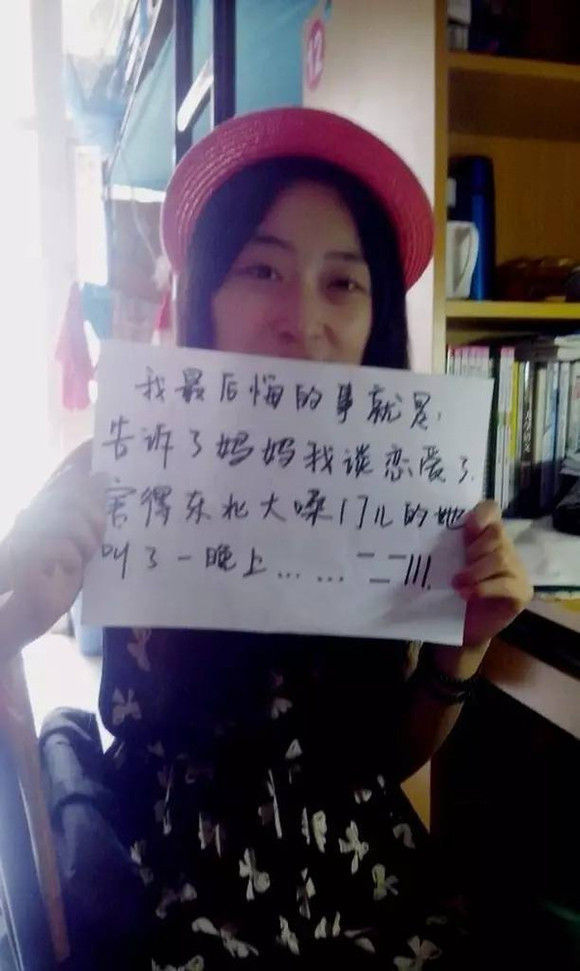 12
我最后悔的事就是,
告诉了妈妈我谈恋爱了.
害得东北大嗓门儿的她
叫了一晚上……二二111.